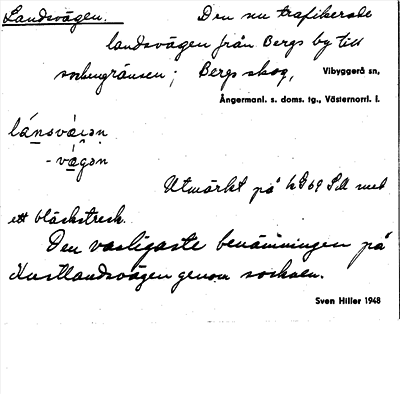 Landsvägen. Den nu trafikerade
landsvägen från Bergs by till
sockengränsen; Bergs skog, Vibyggerå sn,
Ångermanl. s. doms. tg., Västernorrl. l.
lánsvà̱ıən
- và̱gən
Utmärkt på
med
ett bläckstreck.
Den vanligaste benämningen på
Kustlandsvägen genom socknen.
Sven Hiller 1948